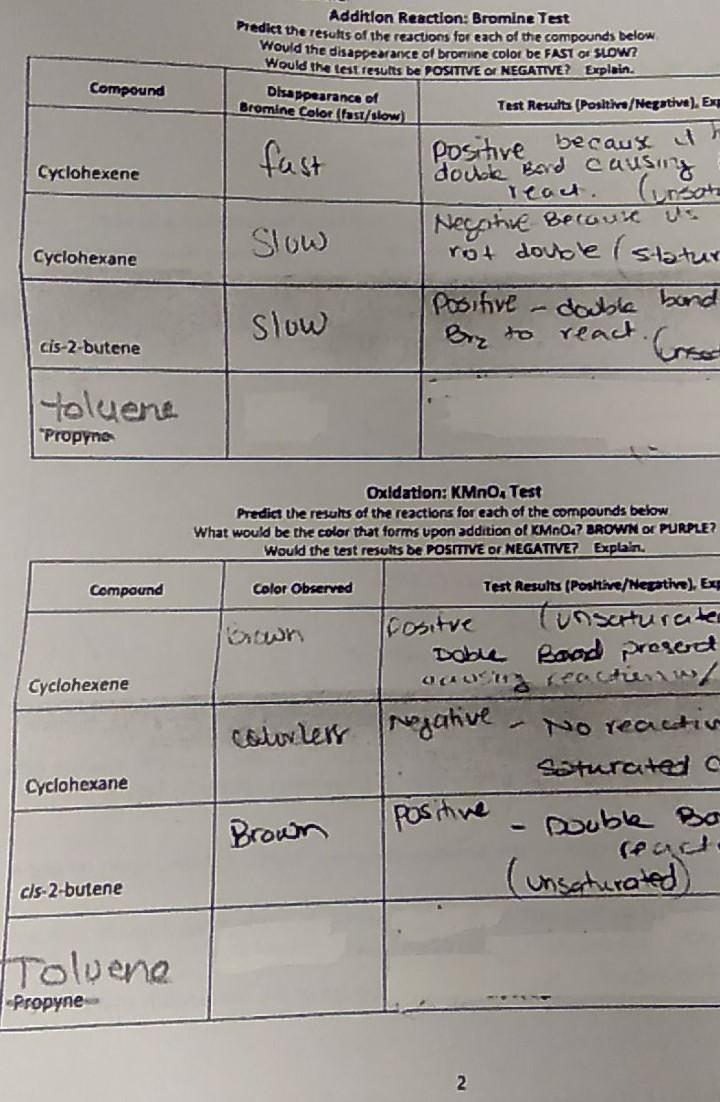 Addition Reaction: Bromine Test
Predict the results of the reactions for each of the compounds below
Would the disappearance of bromine color be FAST or SLOW?
Would the test results be POSITIVE or NEGATIVE? Explain.
Compound
Disappearance of
Bromine Color (fast/slow)
Test Results (Positive/Negative), Exp
Cyclohexene
fast
Positive because it h
double Bond causing
react. (unsat
Cyclohexane
Slow
Negative Because its
not double (statur
cis-2-butene
Slow
Positive - double bond
Br2 to react. (unsat
toluene
Propyne
Oxidation: KMnO₄ Test
Predict the results of the reactions for each of the compounds below
What would be the color that forms upon addition of KMnO₄? BROWN or PURPLE?
Would the test results be POSITIVE or NEGATIVE? Explain.
Compound
Color Observed
Test Results (Positive/Negative), Exp
Cyclohexene
brown
Positve (unsaturate
Doble Bond present
causing reaction w/
Cyclohexane
colorless
Negative - No reactiv
Saturated C
cis-2-butene
Brown
positive - Double Bo
react
(unsaturated)
Toluene
Propyne
2